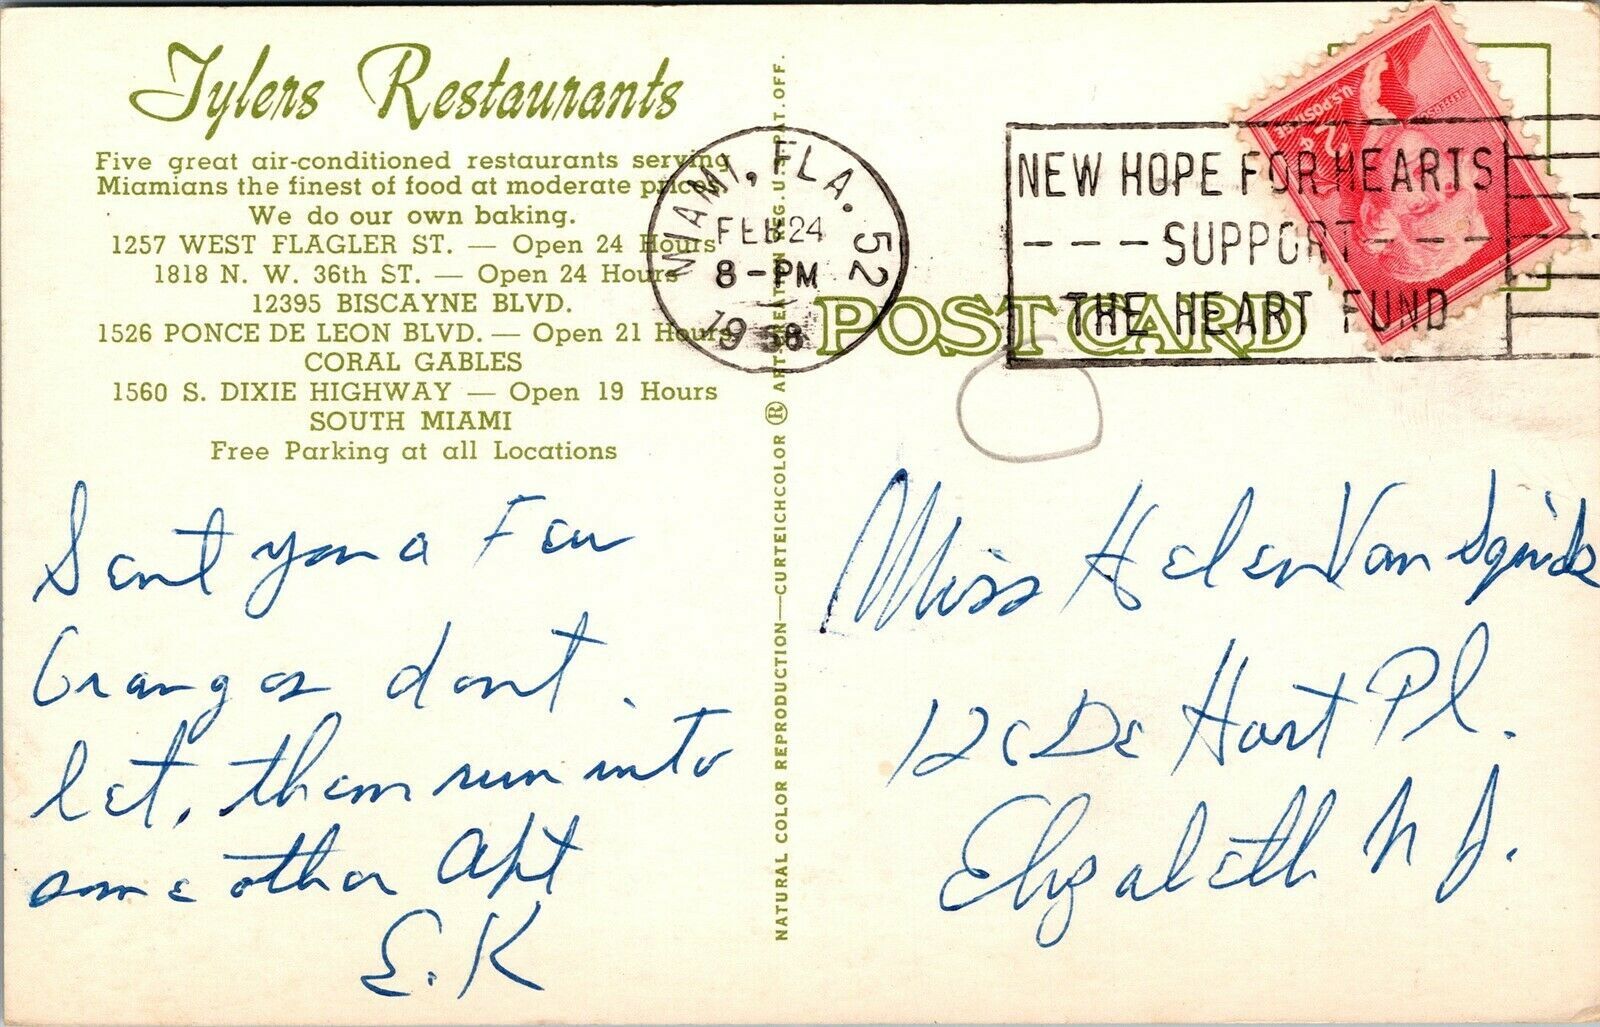 Tylers Restaurants
Five great air-conditioned restaurants serving
Miamians the finest of food at moderate prices.
We do our own baking.
1257 WEST FLAGLER ST. — Open 24 Hours
1818 N. W. 36th ST. — Open 24 Hours
12395 BISCAYNE BLVD.
1526 PONCE DE LEON BLVD. — Open 21 Hours
CORAL GABLES
1560 S. DIXIE HIGHWAY — Open 19 Hours
SOUTH MIAMI
Free Parking at all Locations
Sent you a Few
Oranges dont
let, them run into
some other Apt
E.K
NATURAL COLOR REPRODUCTION—CURTEICHCOLOR ® ART-CREATION REG. U.S. PAT. OFF.
MIAMI, FLA. 52
FEB 24
8-PM
1958
NEW HOPE FOR HEARTS
---SUPPORT---
THE HEART FUND
U.S. POSTAGE
2¢
POST CARD
Miss Helen Van
De Hart Pl.
Elizabeth N J.